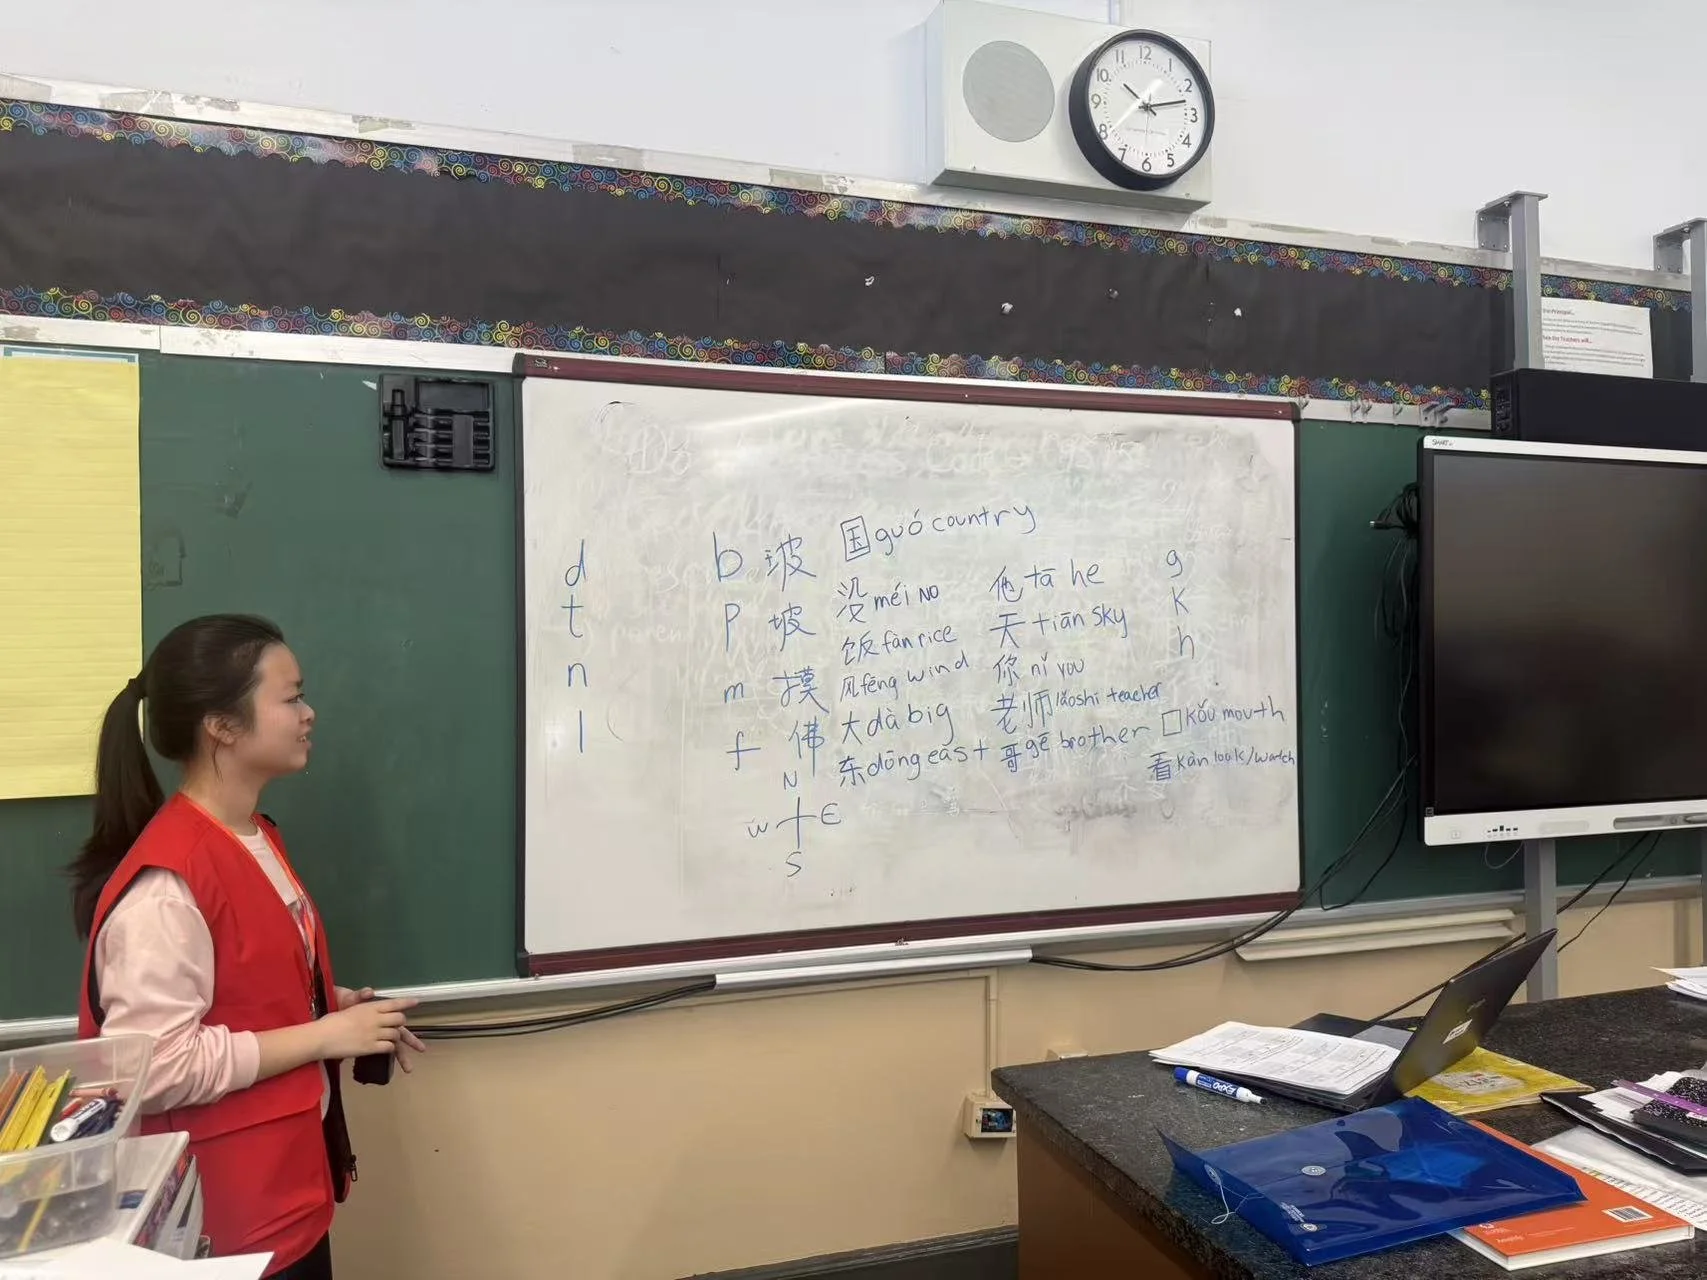 12
1
2
3
4
5
6
7
8
9
10
11
SMART
d
t
n
l
b 玻
p 坡
m 摸
f 佛
国 guó country
没 méi NO
饭 fàn rice
风 fēng wind
大 dà big
东 dōng east
他 tā he
天 tiān sky
你 nǐ you
老师 lǎoshī teacher
哥 gē brother
g
k
h
口 kǒu mouth
看 kàn look/watch
N
W E
S
EXPO